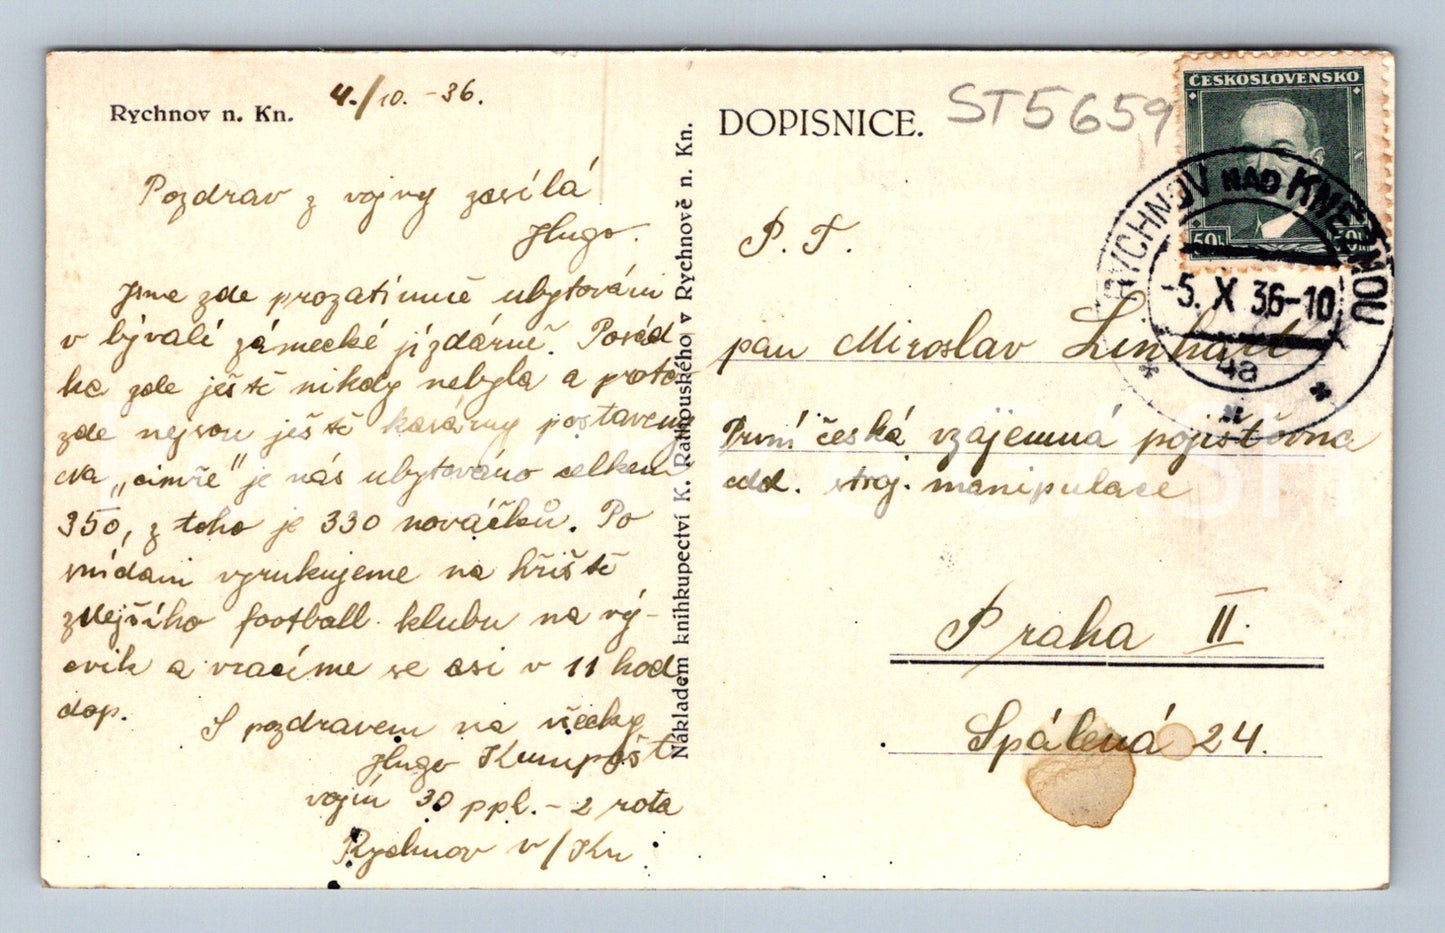 Rychnov n. Kn.
4./10. -36.
Pozdrav z vojny zasílá
Hugo.
Jsme zde prozatimně ubytováni
v bývalé zámecké jízdárně. Posád
ka zde ještě nikdy nebyla a proto
zde nejsou ještě kasárny postaveny
Na „cimře" je nás ubytováno celkem
350, z toho je 330 nováčků. Po
snídani vyrukujeme na hřiště
zdejšího football klubu na vý-
cvik a vracíme se asi v 11 hod
dop.
S pozdravem na všecky
Hugo Kumpošt
vojín 30 ppl. - 2 rota
Rychnov n/Kn
Nákladem knihkupectví K. Rathouského v Rychnově n. Kn.
DOPISNICE.
ST5659
ČESKOSLOVENSKO
50h 50h
RYCHNOV NAD KNĚŽNOU
-5. X 36-10
4a
P. T.
pan Miroslav Linhart
První česká vzájemná pojišťovna
odd. stroj. manipulace
Praha II.
Spálená 24.